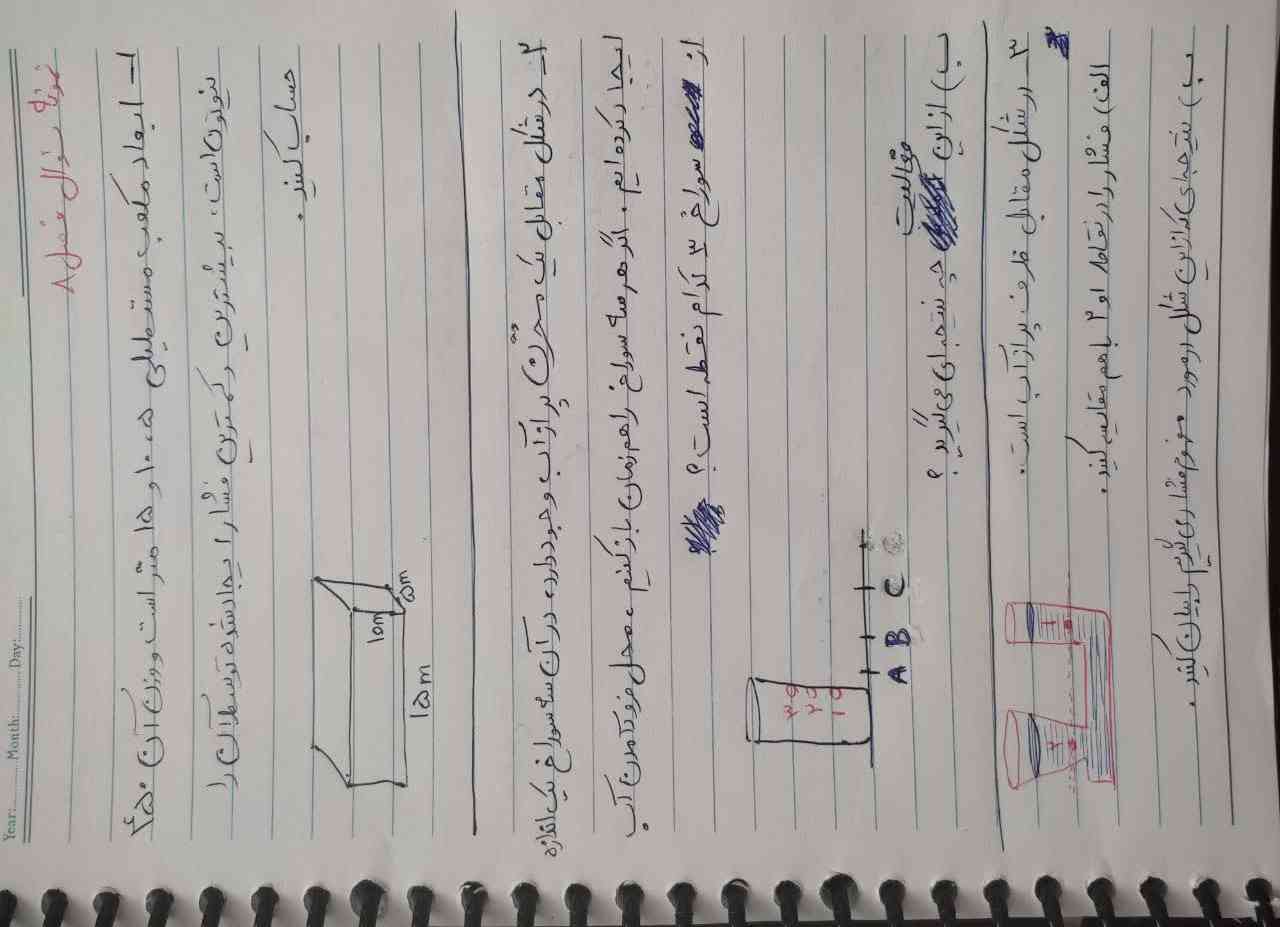 Year:............ Month:............ Day:............
نمونه سوال فصل ۸
۱- ابعاد مکعب مستطیلی ۵، ۱۰ و ۱۵ متر است و وزن آن ۴۵۰
نیوتون است، بیشترین و کمترین فشار ایجاد شده توسط آن را
حساب کنید.
10m
5m
15m
۲- در شکل مقابل یک مخزن پر از آب وجود دارد، در آن سه سوراخ یک اندازه
ایجاد کرده ایم. اگر هر سه سوراخ را هم زمان باز کنیم، محل فرود آمدن آب
از سوراخ ۳ کدام نقطه است؟
۳
۲
۱
A B C
ب) از این فعالیت چه نتیجه‌ای می گیرید؟
۳- در شکل مقابل ظرف پر از آب است.
الف) فشار را در نقاط ۱ و ۲ با هم مقایسه کنید.
۱
۲
ب) نتیجه‌ای که از این شکل در مورد مفهوم فشار می گیریم را بیان کنید.